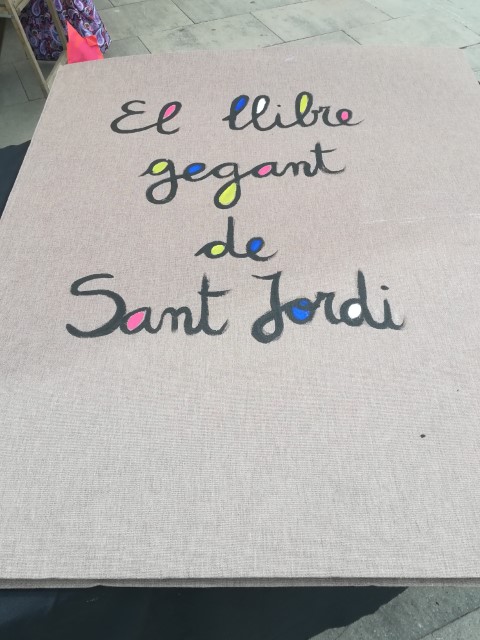 El llibre
gegant
de
Sant Jordi